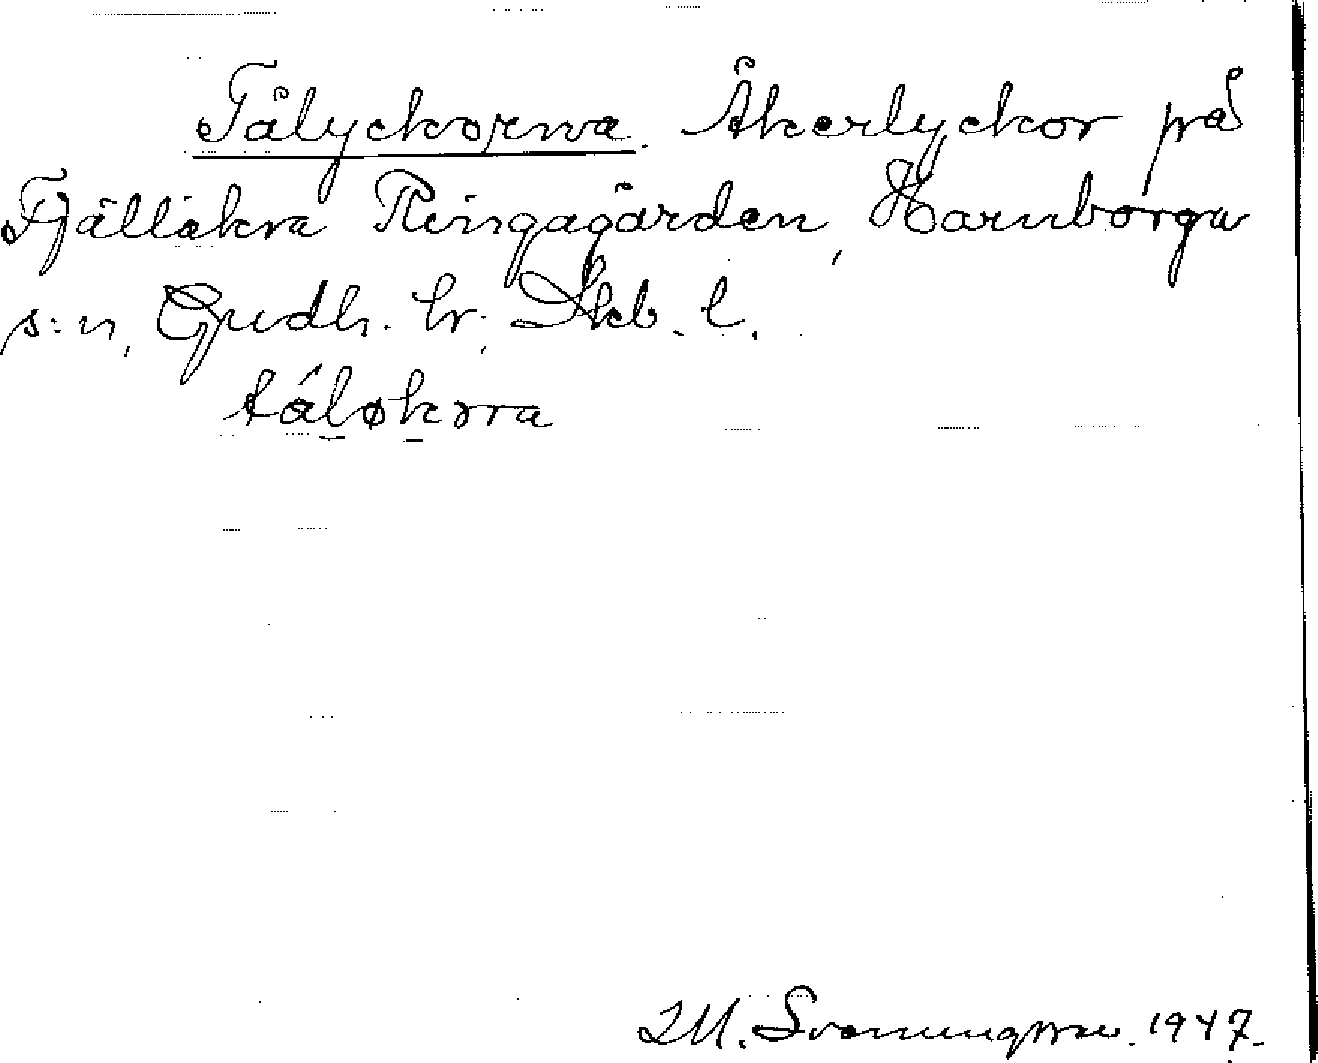 Tålyckorna. Åkerlyckor på
Fjällåkra Ringagården, Hornborga
s:n, Gudh. hr, Skb. l.
tåløkɔra
M. Svenningsson. 1947.